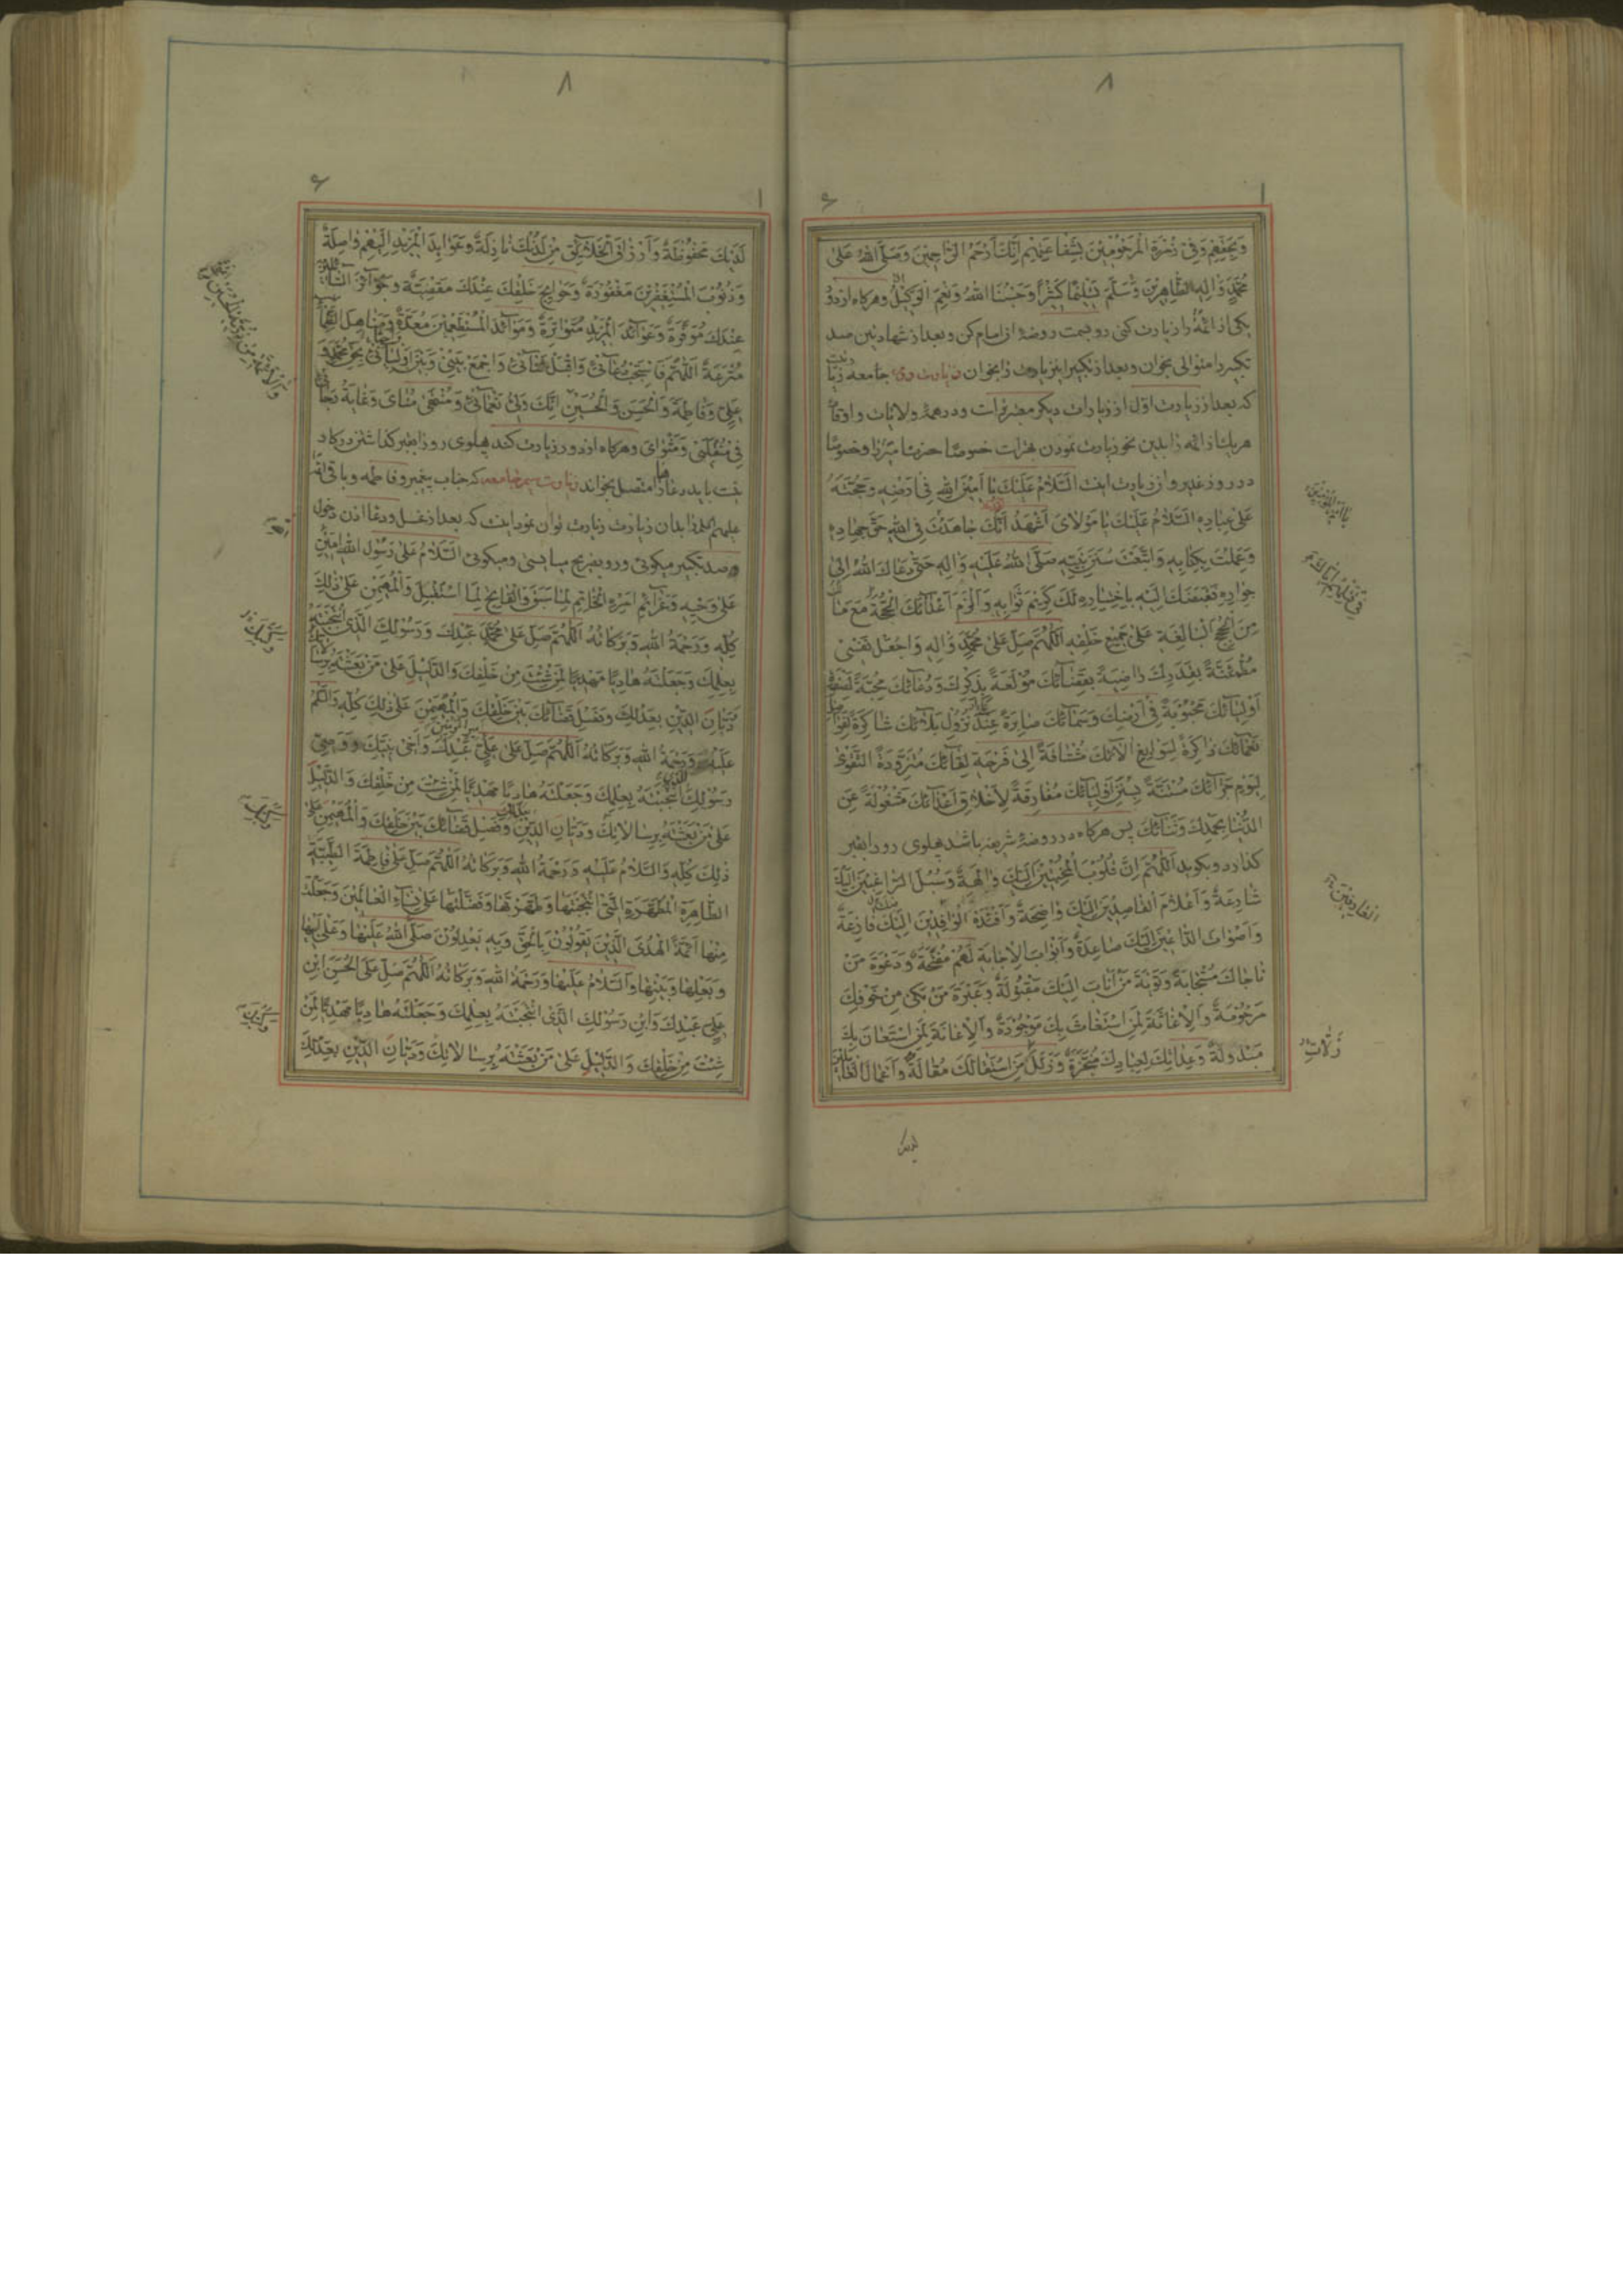 ۸
وَبِحَقِّهِمْ وَفِي زُمْرَةِ الْمَرْحُومِينَ بِشَفَاعَتِهِمْ إِنَّكَ أَرْحَمُ الرَّاحِمِينَ وَصَلَّى اللهُ عَلَى
مُحَمَّدٍ وَآلِهِ الطَّاهِرِينَ وَسَلَّمَ تَسْلِيمًا كَثِيرًا وَحَسْبُنَا اللهُ وَنِعْمَ الْوَكِيلُ وهرکاه از دور
یکی از ائمه را زیارت کنی رو بسمت روضه آن امام کن و بعد از شهادتین صد
تکبیر را متوالی بخوان و بعد از تکبیر این زیارت را بخوان زیارت دوم جامعه زیا
که بعد از زیارت اول از زیارات دیکر معتبر تر است و در همه ولایات و اوقات
هر یک از ائمه را بدین نحو زیارت نمودن بهتر است خصوصا حضرت و خصوصا
در روز غدیر و آن زیارت اینت السَّلَامُ عَلَيْكَ يَا أَمِينَ اللهِ فِي أَرْضِهِ وَحُجَّتَهُ
عَلَى عِبَادِهِ السَّلَامُ عَلَيْكَ يَا مَوْلَايَ أَشْهَدُ أَنَّكَ جَاهَدْتَ فِي اللهِ حَقَّ جِهَادِهِ
وَعَمِلْتَ بِكِتَابِهِ وَاتَّبَعْتَ سُنَنَ نَبِيِّهِ صَلَّى اللهُ عَلَيْهِ وَآلِهِ حَتَّى دَعَاكَ اللهُ إِلَى
جِوَارِهِ فَقَبَضَكَ إِلَيْهِ بِاخْتِيَارِهِ لَكَ كَرِيمَ ثَوَابِهِ وَأَلْزَمَ أَعْدَائَكَ الْحُجَّةَ مَعَ مَا لَكَ
مِنَ الْحُجَجِ الْبَالِغَةِ عَلَى جَمِيعِ خَلْقِهِ اللَّهُمَّ صَلِّ عَلَى مُحَمَّدٍ وَآلِهِ وَاجْعَلْ نَفْسِي
مُطْمَئِنَّةً بِقَدَرِكَ رَاضِيَةً بِقَضَائِكَ مُولَعَةً بِذِكْرِكَ وَدُعَائِكَ مُحِبَّةً لِصَفْوَةِ
أَوْلِيَائِكَ مَحْبُوبَةً فِي أَرْضِكَ وَسَمَائِكَ صَابِرَةً عِنْدَ نُزُولِ بَلَائِكَ شَاكِرَةً لِفَوَاضِلِ
نَعْمَائِكَ ذَاكِرَةً لِسَوَابِغِ آلَائِكَ مُشْتَاقَةً إِلَى فَرْحَةِ لِقَائِكَ مُتَزَوِّدَةً التَّقْوَى
لِيَوْمِ جَزَائِكَ مُسْتَنَّةً بِسُنَنِ أَوْلِيَائِكَ مُفَارِقَةً لِأَخْلَاقِ أَعْدَائِكَ مَشْغُولَةً عَنِ
الدُّنْيَا بِحَمْدِكَ وَثَنَائِكَ پس هرکاه در روضه شریفه باشد پهلوی رو را بقبر
کذارد و بکوید اَللّٰهُمَّ إِنَّ قُلُوبَ الْمُخْبِتِينَ إِلَيْكَ وَالِهَةٌ وَسُبُلَ الرَّاغِبِينَ إِلَيْكَ
شَارِعَةٌ وَأَعْلَامَ الْقَاصِدِينَ إِلَيْكَ وَاضِحَةٌ وَأَفْئِدَةَ الْوَافِدِينَ إِلَيْكَ فَازِعَةٌ
وَأَصْوَاتَ الدَّاعِينَ إِلَيْكَ صَاعِدَةٌ وَأَبْوَابَ الْإِجَابَةِ لَهُمْ مُفَتَّحَةٌ وَدَعْوَةَ مَنْ
نَاجَاكَ مُسْتَجَابَةٌ وَتَوْبَةَ مَنْ أَنَابَ إِلَيْكَ مَقْبُولَةٌ وَعَبْرَةَ مَنْ بَكَى مِنْ خَوْفِكَ
مَرْحُومَةٌ وَالْإِغَاثَةَ لِمَنِ اسْتَغَاثَ بِكَ مَوْجُودَةٌ وَالْإِعَانَةَ لِمَنِ اسْتَعَانَ بِكَ
مَبْذُولَةٌ وَعِدَاتِكَ لِعِبَادِكَ مُنْجَزَةٌ وَزَلَلَ مَنِ اسْتَقَالَكَ مُقَالَةٌ وَأَعْمَالَ الْعَامِلِينَ
العارفين
زلات
لدیک
۸
لَدَيْكَ مَحْفُوظَةٌ وَأَرْزَاقَ الْخَلَائِقِ مِنْ لَدُنْكَ نَازِلَةٌ وَعَوَائِدَ الْمَزِيدِ إِلَيْهِمْ وَاصِلَةٌ
وَذُنُوبَ الْمُسْتَغْفِرِينَ مَغْفُورَةٌ وَحَوَائِجَ خَلْقِكَ عِنْدَكَ مَقْضِيَّةٌ وَجَوَائِزَ السَّائِلِينَ
عِنْدَكَ مُوَفَّرَةٌ وَعَوَائِدَ الْمَزِيدِ مُتَوَاتِرَةٌ وَمَوَائِدَ الْمُسْتَطْعِمِينَ مُعَدَّةٌ وَمَنَاهِلَ الظِّمَاءِ
مُتْرَعَةٌ اللَّهُمَّ فَاسْتَجِبْ دُعَائِي وَاقْبَلْ ثَنَائِي وَاجْمَعْ بَيْنِي وَبَيْنَ أَوْلِيَائِي بِحَقِّ مُحَمَّدٍ وَ
عَلِيٍّ وَفَاطِمَةَ وَالْحَسَنِ وَالْحُسَيْنِ إِنَّكَ وَلِيُّ نَعْمَائِي وَمُنْتَهَى مُنَايَ وَغَايَةُ رَجَائِي
فِي مُنْقَلَبِي وَمَثْوَايَ وهرکاه از دور زیارت کند پهلوی رو را بقبر کذاشتن در کار
نیت باید دعا را متصل بخواند زیارت سیم جامعه که جناب پیغمبر و فاطمه و باقی ائمه
علیهم السلام را بدان زیارت زیارت توان نمود اینت که بعد از غسل و دعا اذن دخول
و صد تکبیر میکوئی و رو بضریح میایستی ومیکوئی السَّلَامُ عَلَى رَسُولِ اللهِ أَمِينِ
عَلَى وَحْيِهِ وَعَزَائِمِ أَمْرِهِ الْخَاتِمِ لِمَا سَبَقَ وَالْفَاتِحِ لِمَا اسْتُقْبِلَ وَالْمُهَيْمِنِ عَلَى ذَلِكَ
كُلِّهِ وَرَحْمَةُ اللهِ وَبَرَكَاتُهُ اللَّهُمَّ صَلِّ عَلَى مُحَمَّدٍ عَبْدِكَ وَرَسُولِكَ الَّذِي انْتَجَبْتَهُ
بِعِلْمِكَ وَجَعَلْتَهُ هَادِيًا مَهْدِيًّا لِمَنْ شِئْتَ مِنْ خَلْقِكَ وَالدَّلِيلَ عَلَى مَنْ بَعَثْتَهُ بِرِسَالَاتِكَ
وَدَيَّانَ الدِّينِ بِعَدْلِكَ وَفَصْلِ قَضَائِكَ بَيْنَ خَلْقِكَ وَالْمُهَيْمِنِ عَلَى ذَلِكَ كُلِّهِ وَالسَّلَامُ
عَلَيْهِ وَرَحْمَةُ اللهِ وَبَرَكَاتُهُ اللَّهُمَّ صَلِّ عَلَى عَلِيٍّ عَبْدِكَ وَأَخِي نَبِيِّكَ وَوَصِيِّ
رَسُولِكَ الَّذِي انْتَجَبْتَهُ بِعِلْمِكَ وَجَعَلْتَهُ هَادِيًا مَهْدِيًّا لِمَنْ شِئْتَ مِنْ خَلْقِكَ وَالدَّلِيلَ
عَلَى مَنْ بَعَثْتَهُ بِرِسَالَاتِكَ وَدَيَّانِ الدِّينِ وَفَصْلِ قَضَائِكَ بَيْنَ خَلْقِكَ وَالْمُهَيْمِنِ عَلَى
ذَلِكَ كُلِّهِ وَالسَّلَامُ عَلَيْهِ وَرَحْمَةُ اللهِ وَبَرَكَاتُهُ اللَّهُمَّ صَلِّ عَلَى فَاطِمَةَ الطَّيِّبَةِ
الطَّاهِرَةِ الْمُطَهَّرَةِ الَّتِي انْتَجَبْتَهَا وَطَهَّرْتَهَا وَفَضَّلْتَهَا عَلَى نِسَاءِ الْعَالَمِينَ وَجَعَلْتَ
مِنْهَا أَئِمَّةَ الْهُدَى الَّذِينَ يَقُولُونَ بِالْحَقِّ وَبِهِ يَعْدِلُونَ صَلَّى اللهُ عَلَيْهَا وَعَلَى أَبِيهَا
وَبَعْلِهَا وَبَنِيهَا وَالسَّلَامُ عَلَيْهَا وَرَحْمَةُ اللهِ وَبَرَكَاتُهُ اللَّهُمَّ صَلِّ عَلَى الْحَسَنِ ابْنِ
عَلِيٍّ عَبْدِكَ وَابْنِ رَسُولِكَ الَّذِي انْتَجَبْتَهُ بِعِلْمِكَ وَجَعَلْتَهُ هَادِيًا مَهْدِيًّا لِمَنْ
شِئْتَ مِنْ خَلْقِكَ وَالدَّلِيلِ عَلَى مَنْ بَعَثْتَهُ بِرِسَالَاتِكَ وَدَيَّانِ الدِّينِ بِعَدْلِكَ